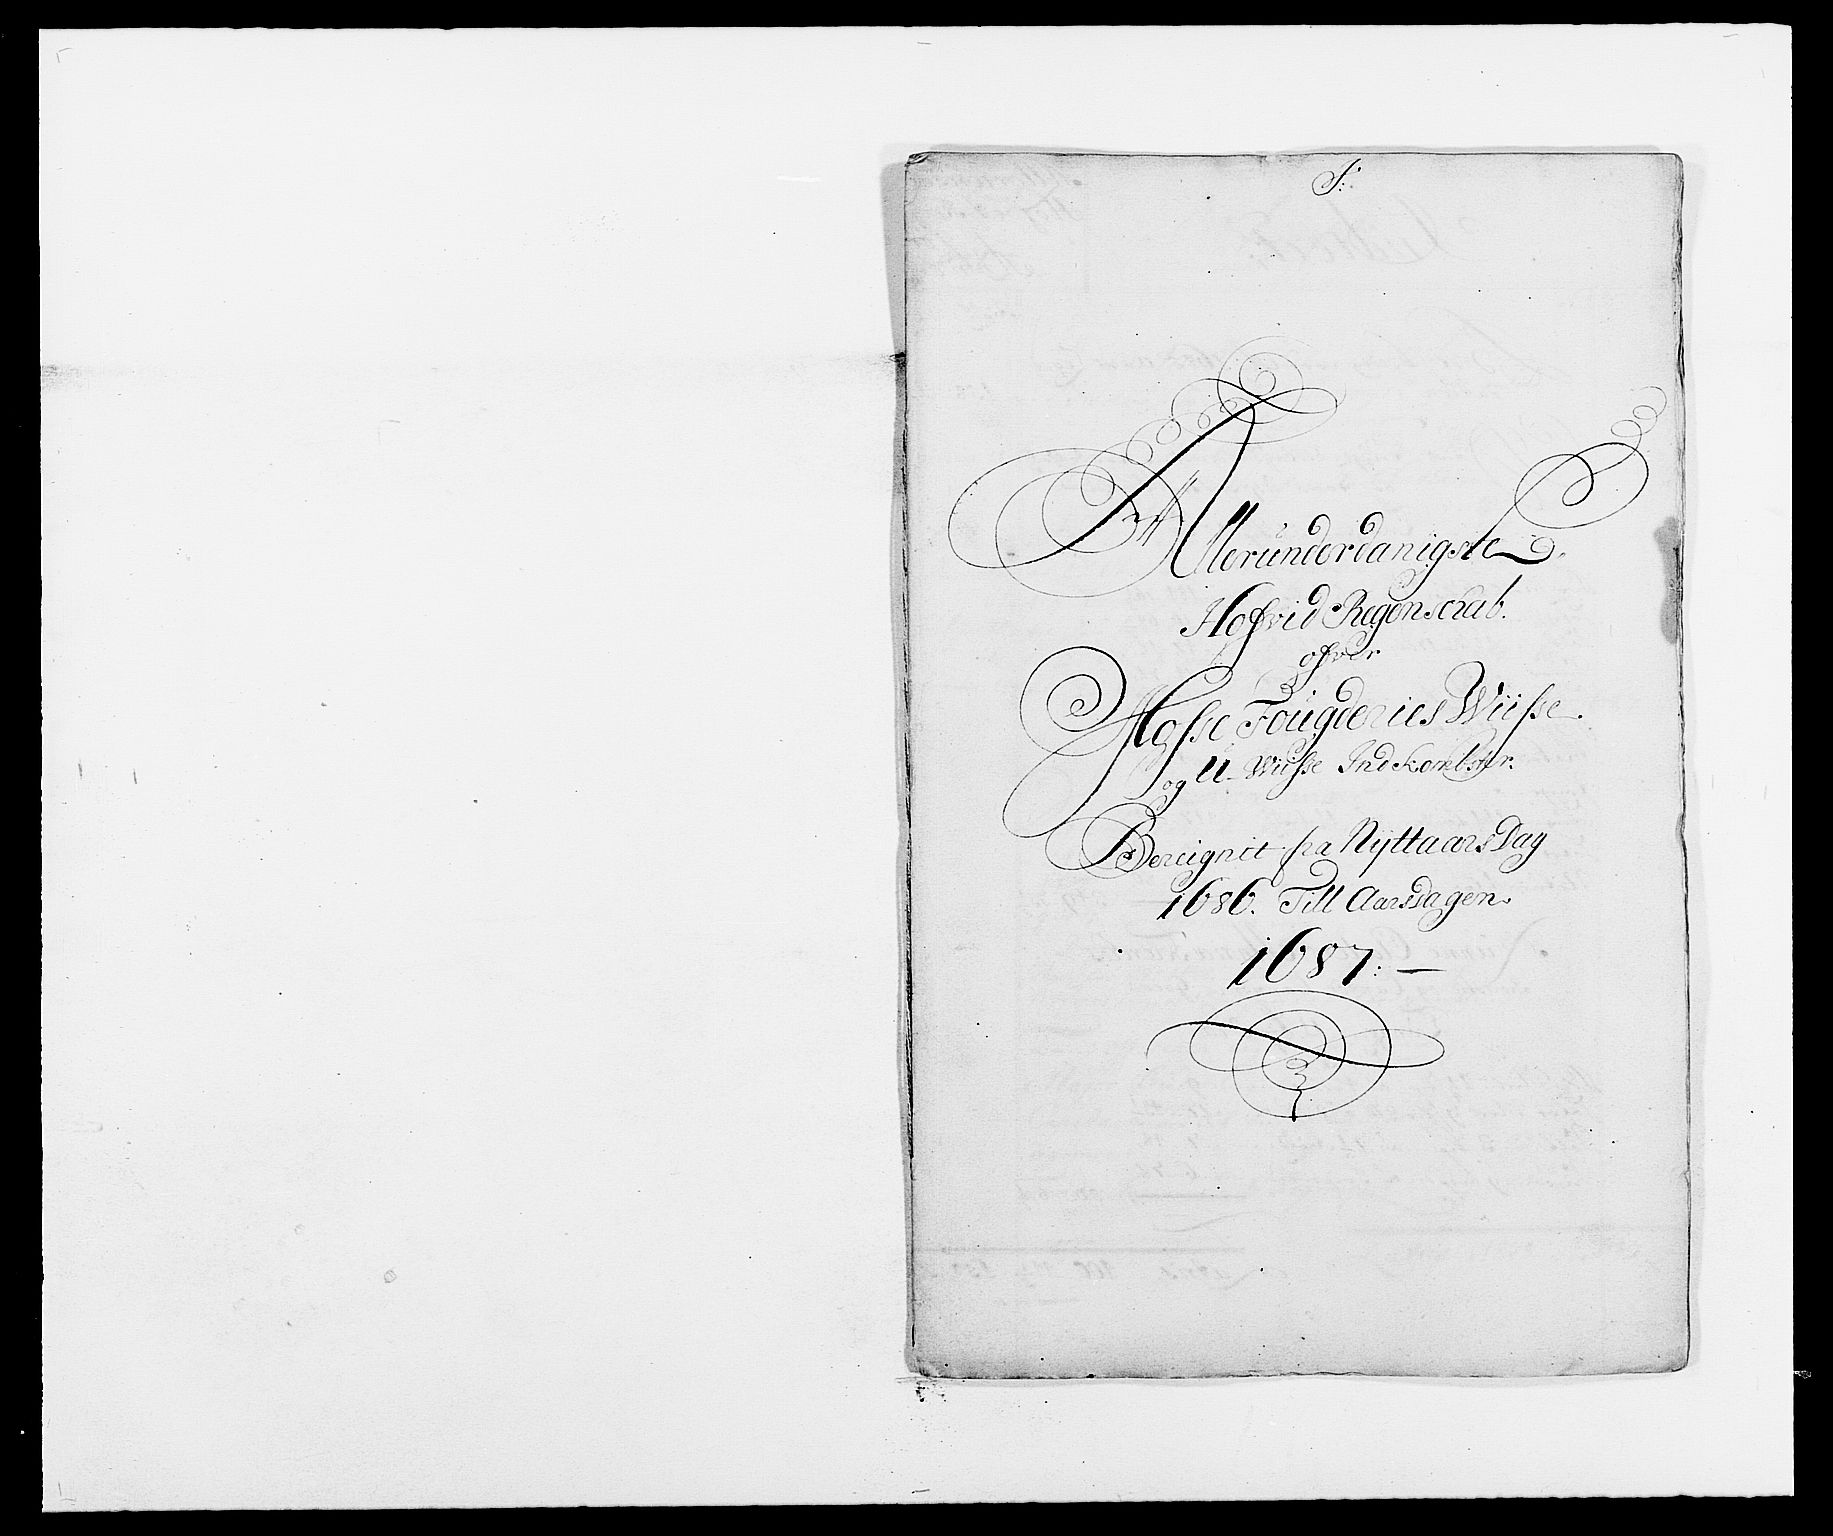 Allerunderdanigste
Hofvid Regenschab.
ofver
Mosse Fougderies Wiisse
og U-Wiisse Indkombster.
Bereignit fra Nyttaars Dag
1686. Till Aarsdagen
1687: